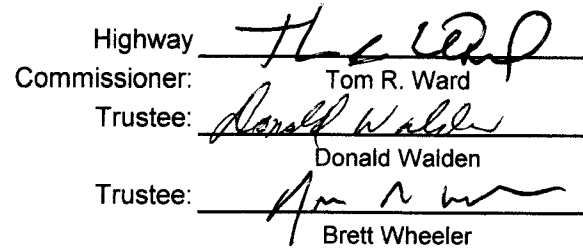 Highway
Commissioner: Tom R. Ward
Trustee: Donald Walden
Donald Walden
Trustee:
Brett Wheeler